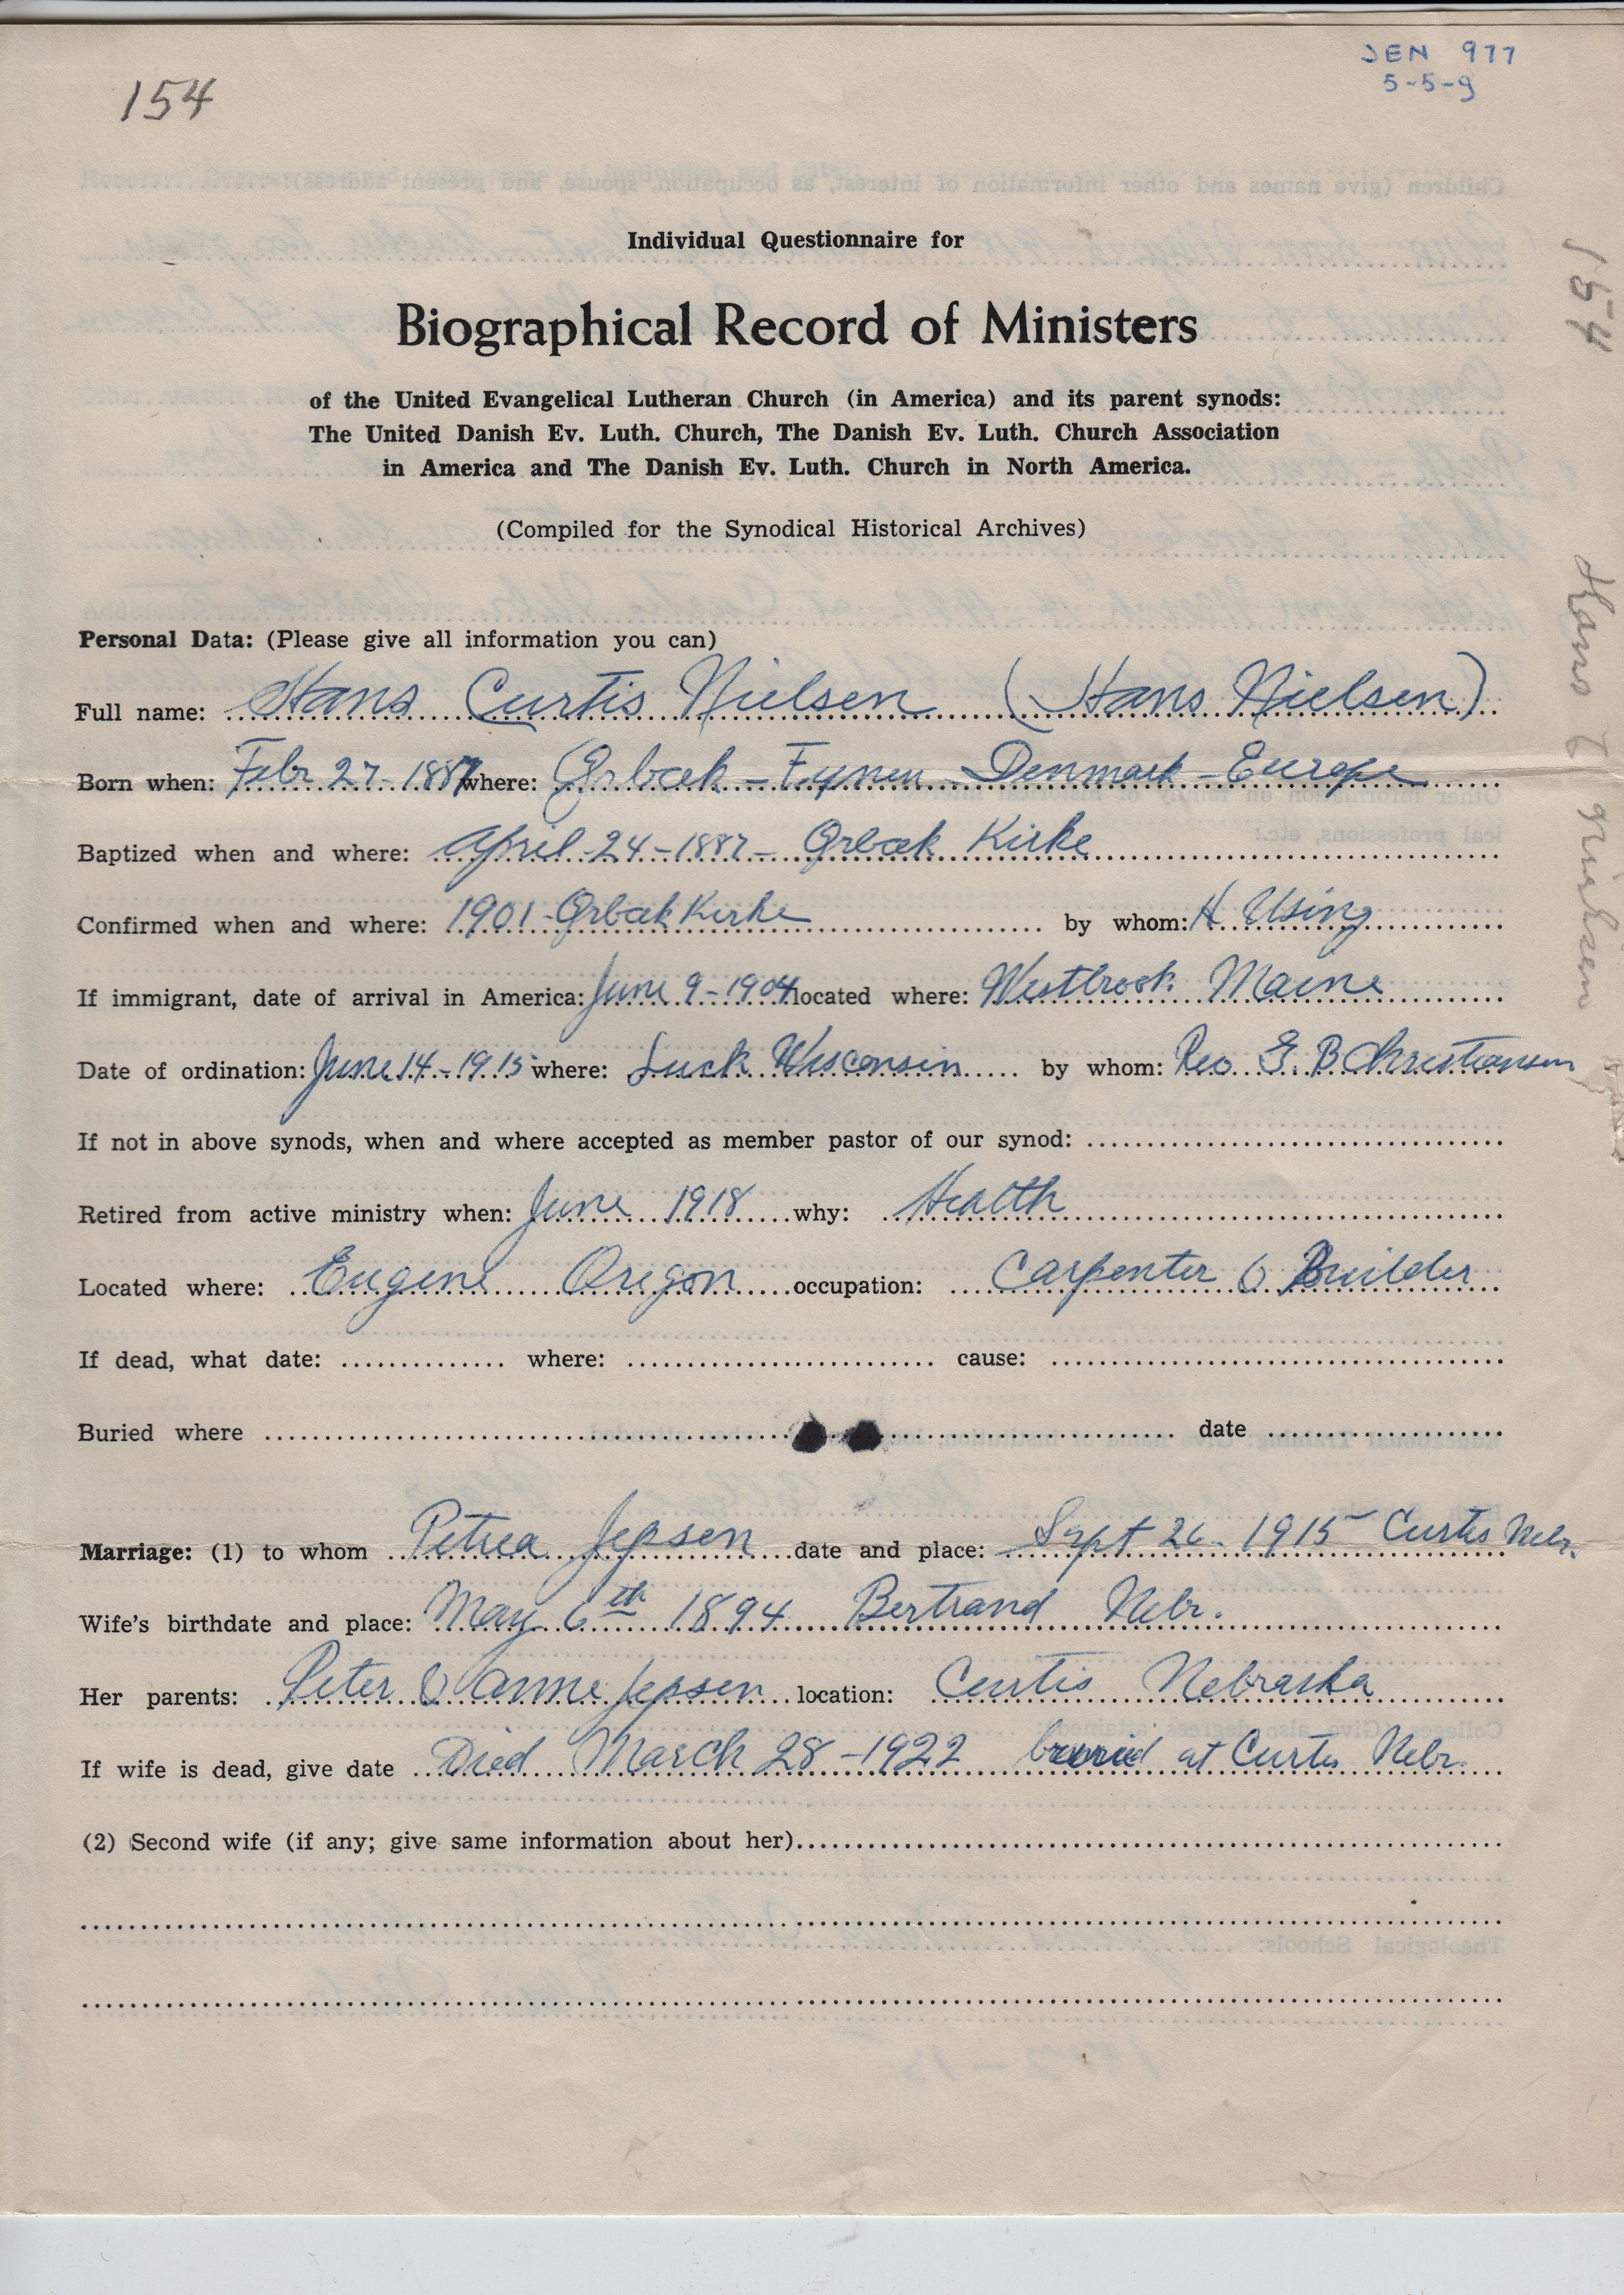 JEN 977
5-5-9
154
Individual Questionnaire for
Biographical Record of Ministers
of the United Evangelical Lutheran Church (in America) and its parent synods:
The United Danish Ev. Luth. Church, The Danish Ev. Luth. Church Association
in America and The Danish Ev. Luth. Church in North America.
(Compiled for the Synodical Historical Archives)
Personal Data: (Please give all information you can)
Full name: Hans Curtis Nielsen (Hans Nielsen)
Born when: Febr 27-1887 where: Ørbæk - Fynen - Denmark - Europe
Baptized when and where: April-24-1887- Ørbæk Kirke
Confirmed when and where: 1901-Ørbæk Kirke by whom: H. Using
If immigrant, date of arrival in America: June 9-1904 located where: Westbrook Maine
Date of ordination: June 14-1915 where: Luck Wisconsin by whom: Rev. G. B. Christiansen
If not in above synods, when and where accepted as member pastor of our synod:
Retired from active ministry when: June 1918 why: Health
Located where: Eugene Oregon occupation: Carpenter & Builder
If dead, what date: where: cause:
Buried where date
Marriage: (1) to whom Petrea Jepsen date and place: Sept 26-1915 Curtis Nebr.
Wife's birthdate and place: May 6th 1894 Bertrand Nebr.
Her parents: Peter & Anne Jepsen location: Curtis Nebraska
If wife is dead, give date Died March 28-1922 buried at Curtis Nebr.
(2) Second wife (if any; give same information about her)
154
Hans C